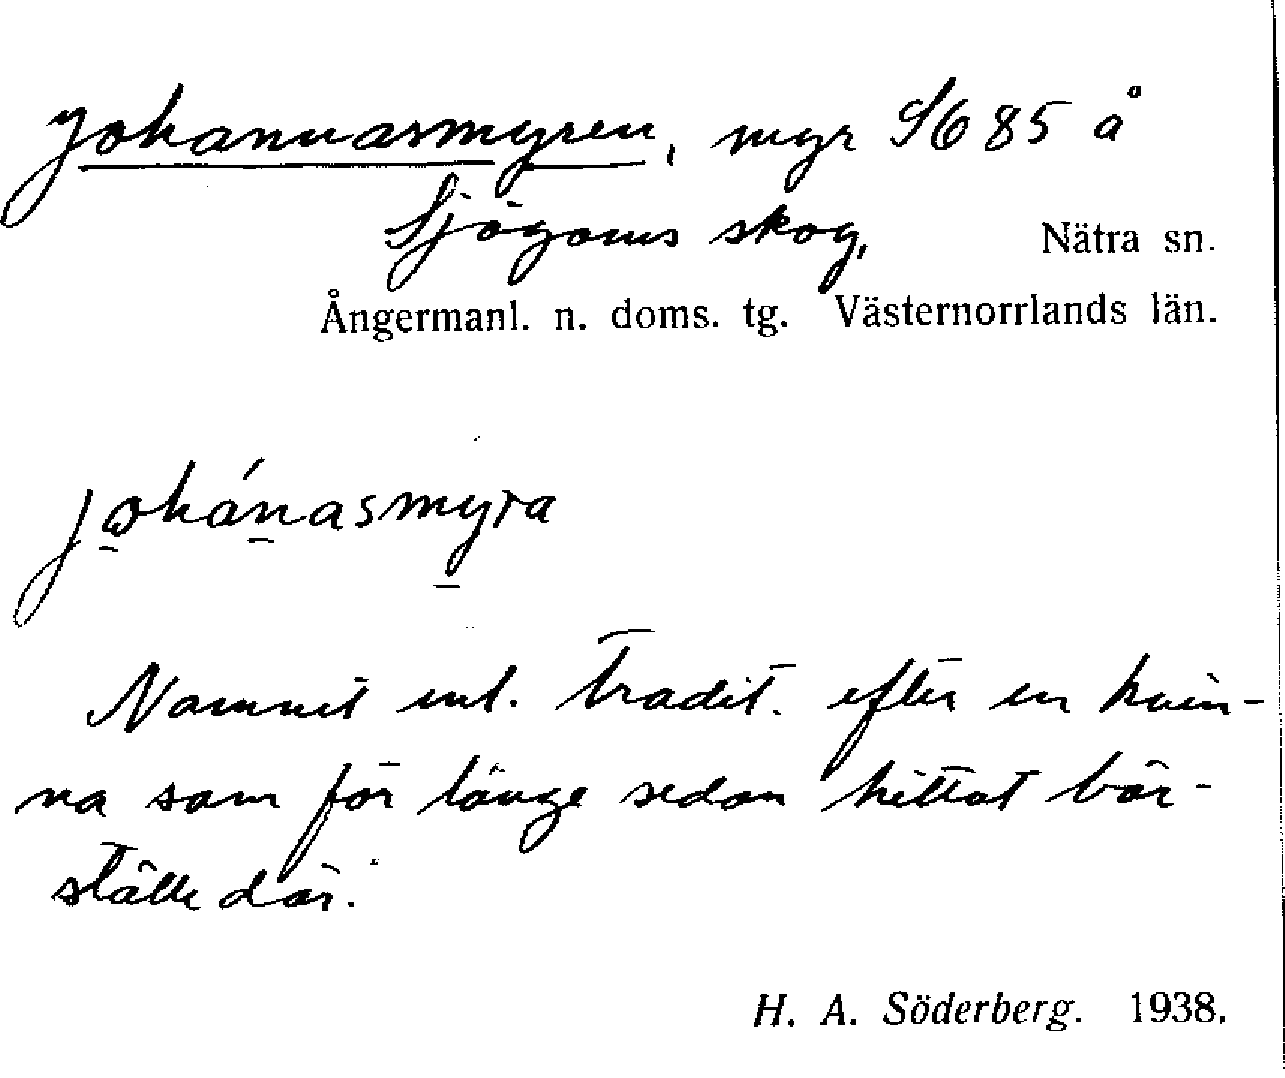 Johannasmyren, myr S6 85 å
Sjögoms skog, Nätra sn.
Ångermanl. n. doms. tg. Västernorrlands län.
johánasmyra
Namnet enl. tradit. efter en kvin-
na som för länge sedan hittat bär-
ställe där.
H. A. Söderberg. 1938.